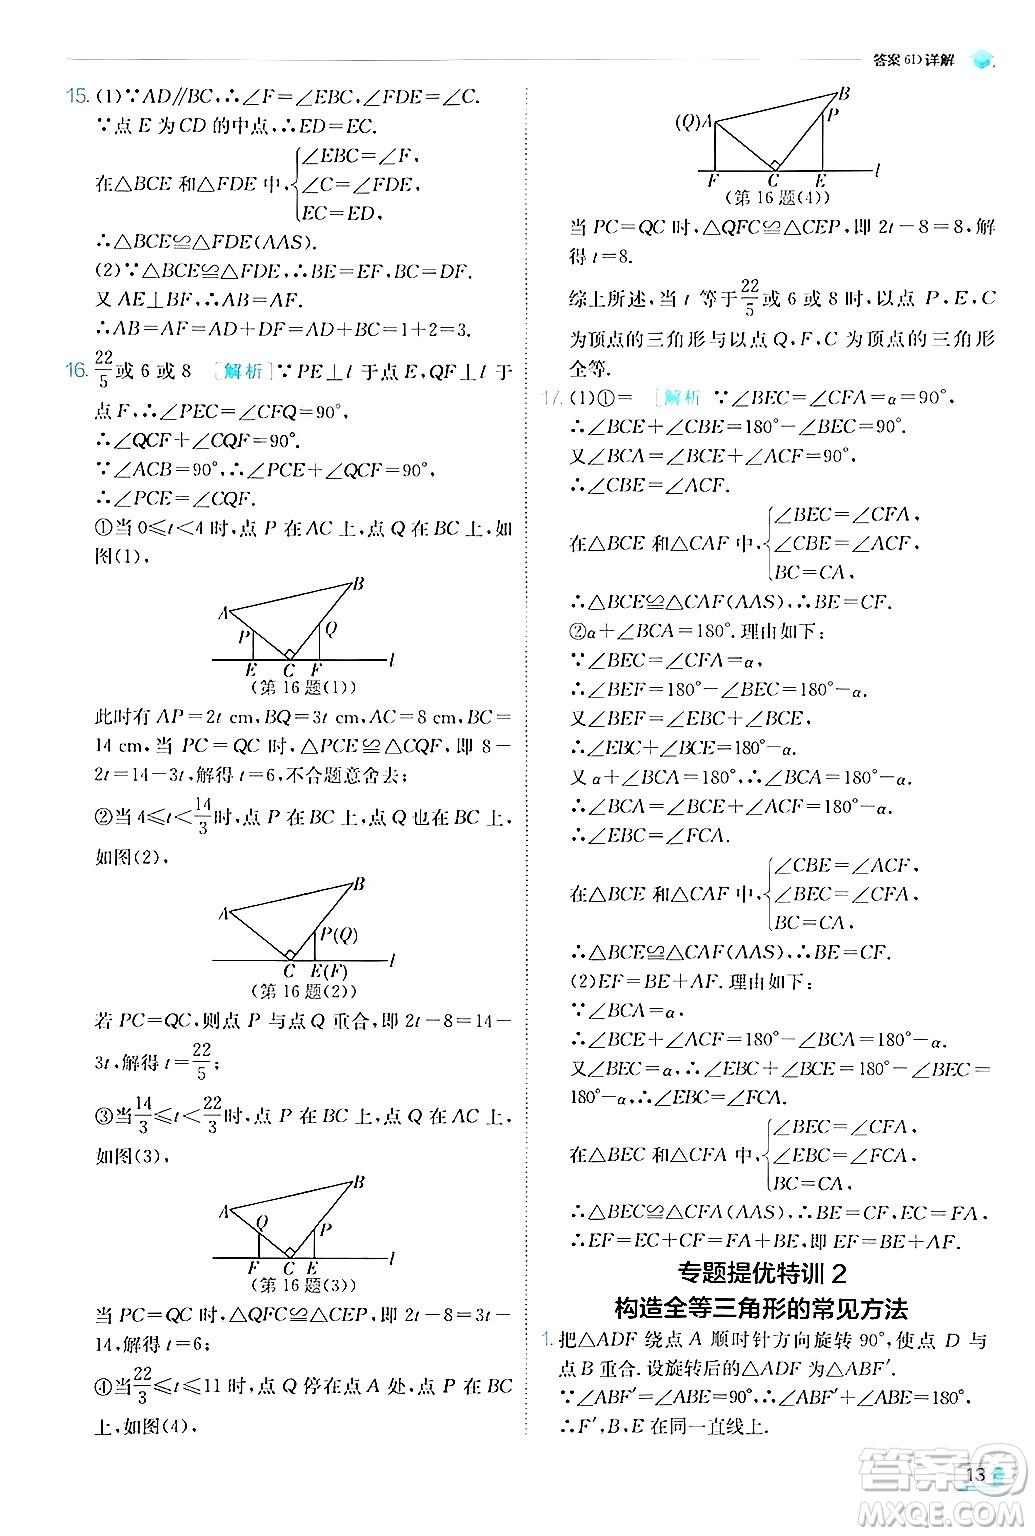 答案 61D 详解
15. (1)∵AD∥BC,∴∠F=∠EBC,∠FDE=∠C.
∵点 E 为 CD 的中点,∴ED=EC.
在△BCE 和△FDE 中,
∠EBC=∠F,
∠C=∠FDE,
EC=ED,
∴△BCE≌△FDE(AAS).
(2)∵△BCE≌△FDE,∴BE=EF,BC=DF.
又 AE⊥BF,∴AB=AF.
∴AB=AF=AD+DF=AD+BC=1+2=3.
16. 22/5 或 6 或 8 [解析]∵PE⊥l 于点 E,QF⊥l 于
点 F,∴∠PEC=∠CFQ=90°.
∴∠QCF+∠CQF=90°.
∵∠ACB=90°,∴∠PCE+∠QCF=90°.
∴∠PCE=∠CQF.
①当 0≤t<4 时,点 P 在 AC 上,点 Q 在 BC 上,如
图(1),
A B P Q E C F l
(第 16 题(1))
此时有 AP=2t cm,BQ=3t cm,AC=8 cm,BC=
14 cm,当 PC=QC 时,△PCE≌△CQF,即 8-
2t=14-3t,解得 t=6,不合题意舍去;
②当 4≤t<14/3 时,点 P 在 BC 上,点 Q 也在 BC 上,
如图(2),
A B P(Q) C E(F) l
(第 16 题(2))
若 PC=QC,则点 P 与点 Q 重合,即 2t-8=14-
3t,解得 t=22/5;
③当14/3≤t<22/3时,点 P 在 BC 上,点 Q 在 AC 上,
如图(3),
A B Q P F C E l
(第 16 题(3))
当 PC=QC 时,△QFC≌△CEP,即 2t-8=3t-
14,解得 t=6;
④当22/3≤t≤11 时,点 Q 停在点 A 处,点 P 在 BC
上,如图(4),
(Q)A B P F C E l
(第 16 题(4))
当 PC=QC 时,△QFC≌△CEP,即 2t-8=8,解
得 t=8.
综上所述,当 t 等于22/5或 6 或 8 时,以点 P,E,C
为顶点的三角形与以点 Q,F,C 为顶点的三角形
全等.
17. (1)①= [解析] ∵∠BEC=∠CFA=α=90°,
∴∠BCE+∠CBE=180°-∠BEC=90°.
又∠BCA=∠BCE+∠ACF=90°,
∴∠CBE=∠ACF.
在△BCE 和△CAF 中,
∠BEC=∠CFA,
∠CBE=∠ACF,
BC=CA,
∴△BCE≌△CAF(AAS),∴BE=CF.
②α+∠BCA=180°.理由如下:
∵∠BEC=∠CFA=α,
∴∠BEF=180°-∠BEC=180°-α.
又∠BEF=∠EBC+∠BCE,
∴∠EBC+∠BCE=180°-α.
又 α+∠BCA=180°,∴∠BCA=180°-α.
∴∠BCA=∠BCE+∠ACF=180°-α,
∴∠EBC=∠FCA.
在△BCE 和△CAF 中,
∠CBE=∠ACF,
∠BEC=∠CFA,
BC=CA,
∴△BCE≌△CAF(AAS),∴BE=CF.
(2)EF=BE+AF.理由如下:
∵∠BCA=α,
∴∠BCE+∠ACF=180°-∠BCA=180°-α.
又∠BEC=α,∴∠EBC+∠BCE=180°-∠BEC=
180°-α,∴∠EBC=∠FCA.
在△BEC 和△CFA 中,
∠BEC=∠CFA,
∠EBC=∠FCA,
BC=CA,
∴△BEC≌△CFA(AAS),∴BE=CF,EC=FA,
∴EF=EC+CF=FA+BE,即 EF=BE+AF.
专题提优特训 2
构造全等三角形的常见方法
1. 把△ADF 绕点 A 顺时针方向旋转 90°,使点 D 与
点 B 重合.设旋转后的△ADF 为△ABF′.
∵∠ABF′=∠ABE=90°,∴∠ABF′+∠ABE=180°,
∴F′,B,E 在同一直线上.
13
答案圈
MXQE.COM